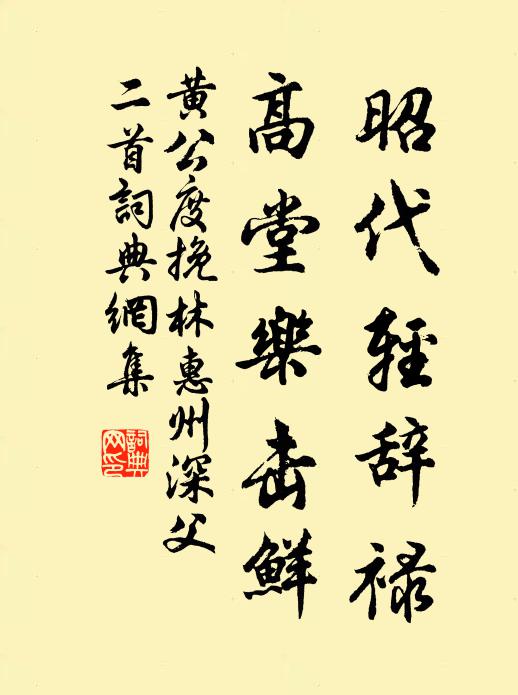 昭代輕辞禄
高堂樂击鮮
黄公度挽林惠州深父
二首詞典網集
詞典
网印